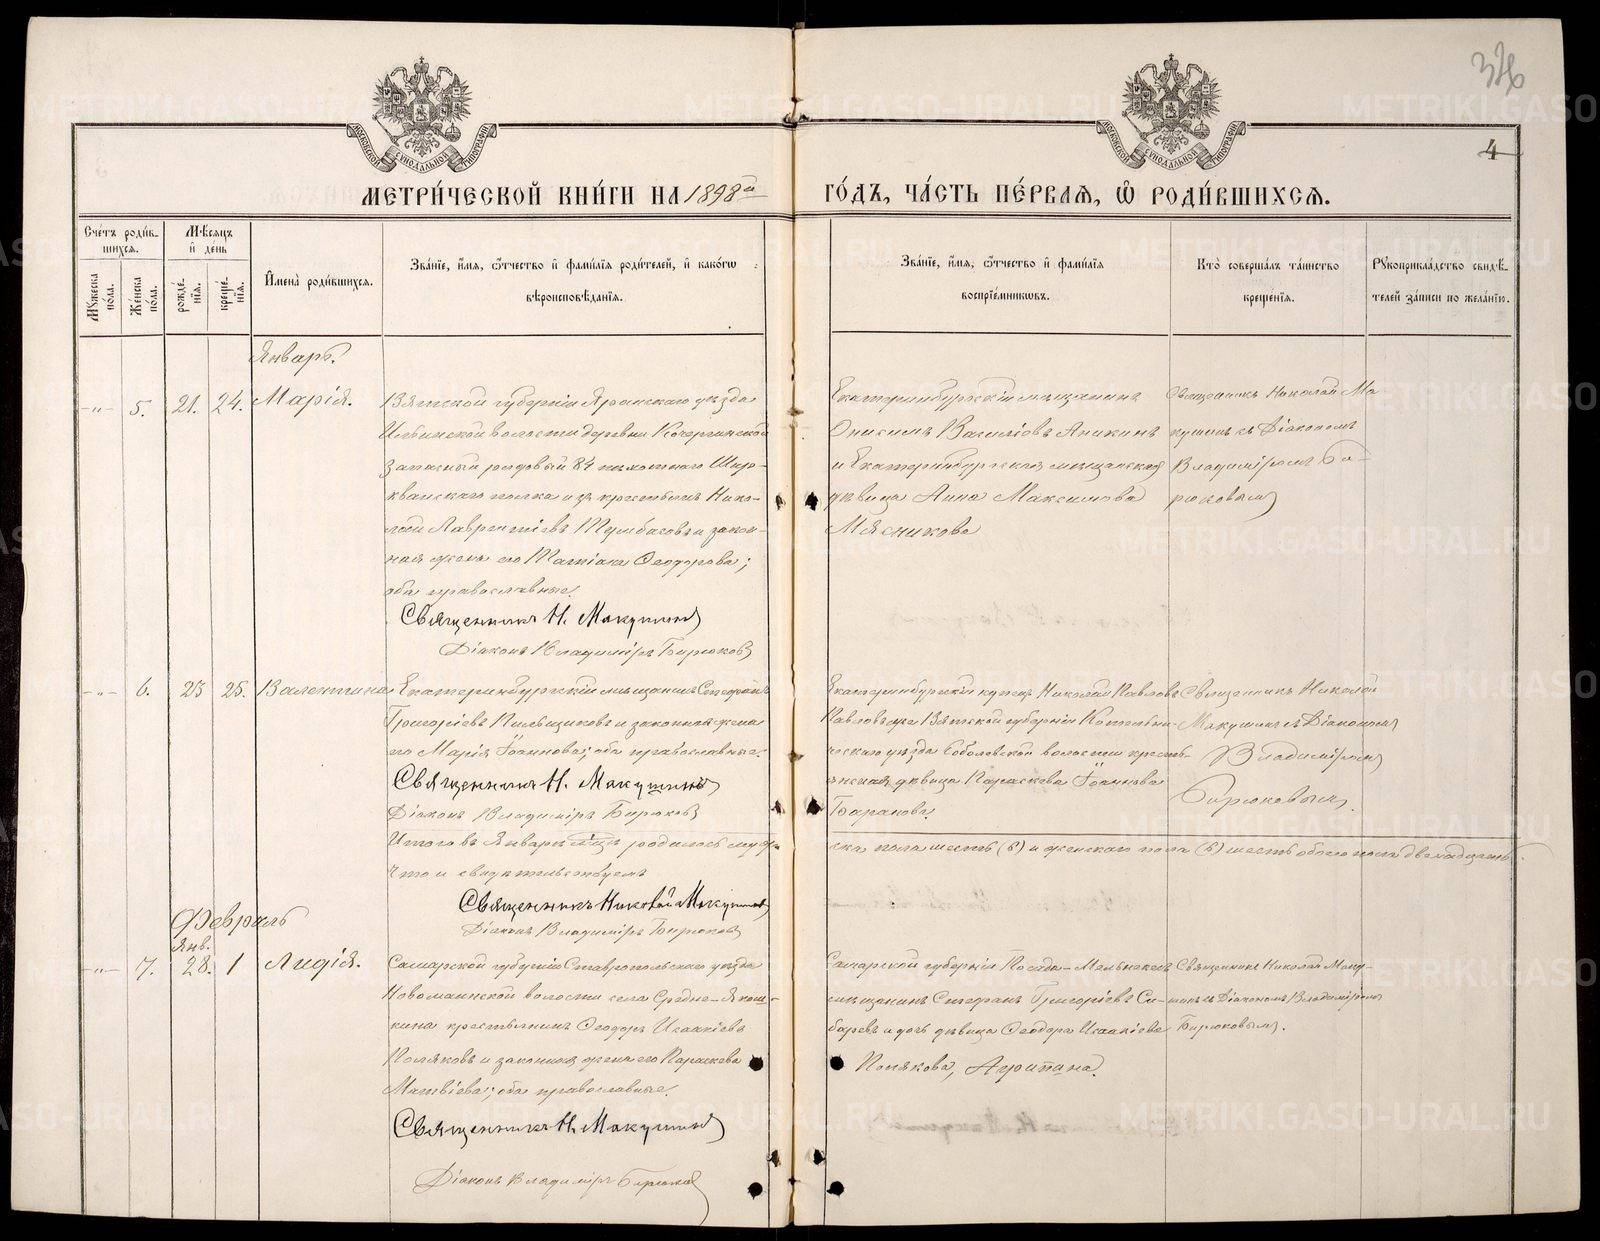 376
4
МОСКОВСКОЙ СѴНОДАЛЬНОЙ ТИПОГРАФІИ
МОСКОВСКОЙ СѴНОДАЛЬНОЙ ТИПОГРАФІИ
МЕТРИ́ЧЕСКОЙ КНИ́ГИ НА 1898й ГО́ДЪ, ЧА́СТЬ ПЕ́РВАѦ, Ѡ҆ РОДИ́ВШИХСѦ.
Сче́тъ роди́вшихсѧ.
Мꙋ́жеска по́ла.
Же́нска по́ла.
Мѣ́сѧцъ и҆ де́нь
рожде́нїѧ.
креще́нїѧ.
И҆мена̀ роди́вшихсѧ.
Зва́нїе, и҆́мѧ, ѻ҆́тчество и҆ фами́лїѧ роди́телей, и҆ како́гѡ
вѣроисповѣ́данїѧ.
Зва́нїе, и҆́мѧ, ѻ҆́тчество и҆ фами́лїѧ
воспрїе́мникѡвъ.
Кто̀ соверша́лъ та́инство
креще́нїѧ.
Рꙋкоприкла́дство свидѣ́телей за́писи по жела́нїю.
Январь.
-"- 5. 21. 24. Марія.
Вятской губерніи Яранскаго уѣзда
Ильинской волости деревни Кочергинской
запасный рядовый 84 пѣхотнаго Шир-
ванскаго полка изъ крестьянъ Нико-
лай Лаврентіевъ Тумбасовъ и закон-
ная жена его Татіана Ѳеодорова;
оба православные.
Священникъ Н. Макушинъ
Діаконъ Владиміръ Бирюковъ
Екатеринбургскій мѣщанинъ
Онисимъ Василіевъ Аникинъ
и Екатеринбургская мѣщанская
дѣвица Анна Максимова
Мясникова
Священникъ Николай Ма-
кушинъ съ Діакономъ
Владиміромъ Би-
рюковымъ
-"- 6. 23 25. Валентина
Екатеринбургскій мѣщанинъ Стефанъ
Григоріевъ Пильщиковъ и законная жена
его Марія Іоаннова; оба православные.
Священникъ Н. Макушинъ
Діаконъ Владиміръ Бирюковъ
Екатеринбургскій купецъ Николай Павловъ
Павловъ и Вятской губерніи Котельни-
ческаго уѣзда Соболевской волости кресть-
янская дѣвица Параскева Іоаннова
Баранова.
Священникъ Николай
Макушинъ съ Діакономъ
Владиміромъ
Бирюковымъ.
Итого въ Январѣ мцѣ родилось муже-
ска пола шесть (6) и женскаго пола (6) шесть обоего пола двенадцать.
Что и свидѣтельствуемъ
Священникъ Николай Макушинъ
Діаконъ Владиміръ Бирюковъ
Февраль
Янв.
-"- 7. 28. 1 Лидія.
Самарской губерніи Ставропольскаго уѣзда
Новомаинской волости села Средне-Якуш-
кина крестьянинъ Ѳеодоръ Исаакіевъ
Поляковъ и законная жена его Параскева
Матвіева; оба православные.
Священникъ Н. Макушинъ
Діаконъ Владиміръ Бирюковъ
Самарской губерніи Посада-Мелекесъ
мѣщанинъ Стефанъ Григоріевъ Си-
баревъ и дочь дѣвица Ѳеодора Исаакіева
Полякова, Агрипина.
Священникъ Николай Маку-
шинъ съ Діакономъ Владиміромъ
Бирюковымъ.
METRIKI.GASO-URAL.RU